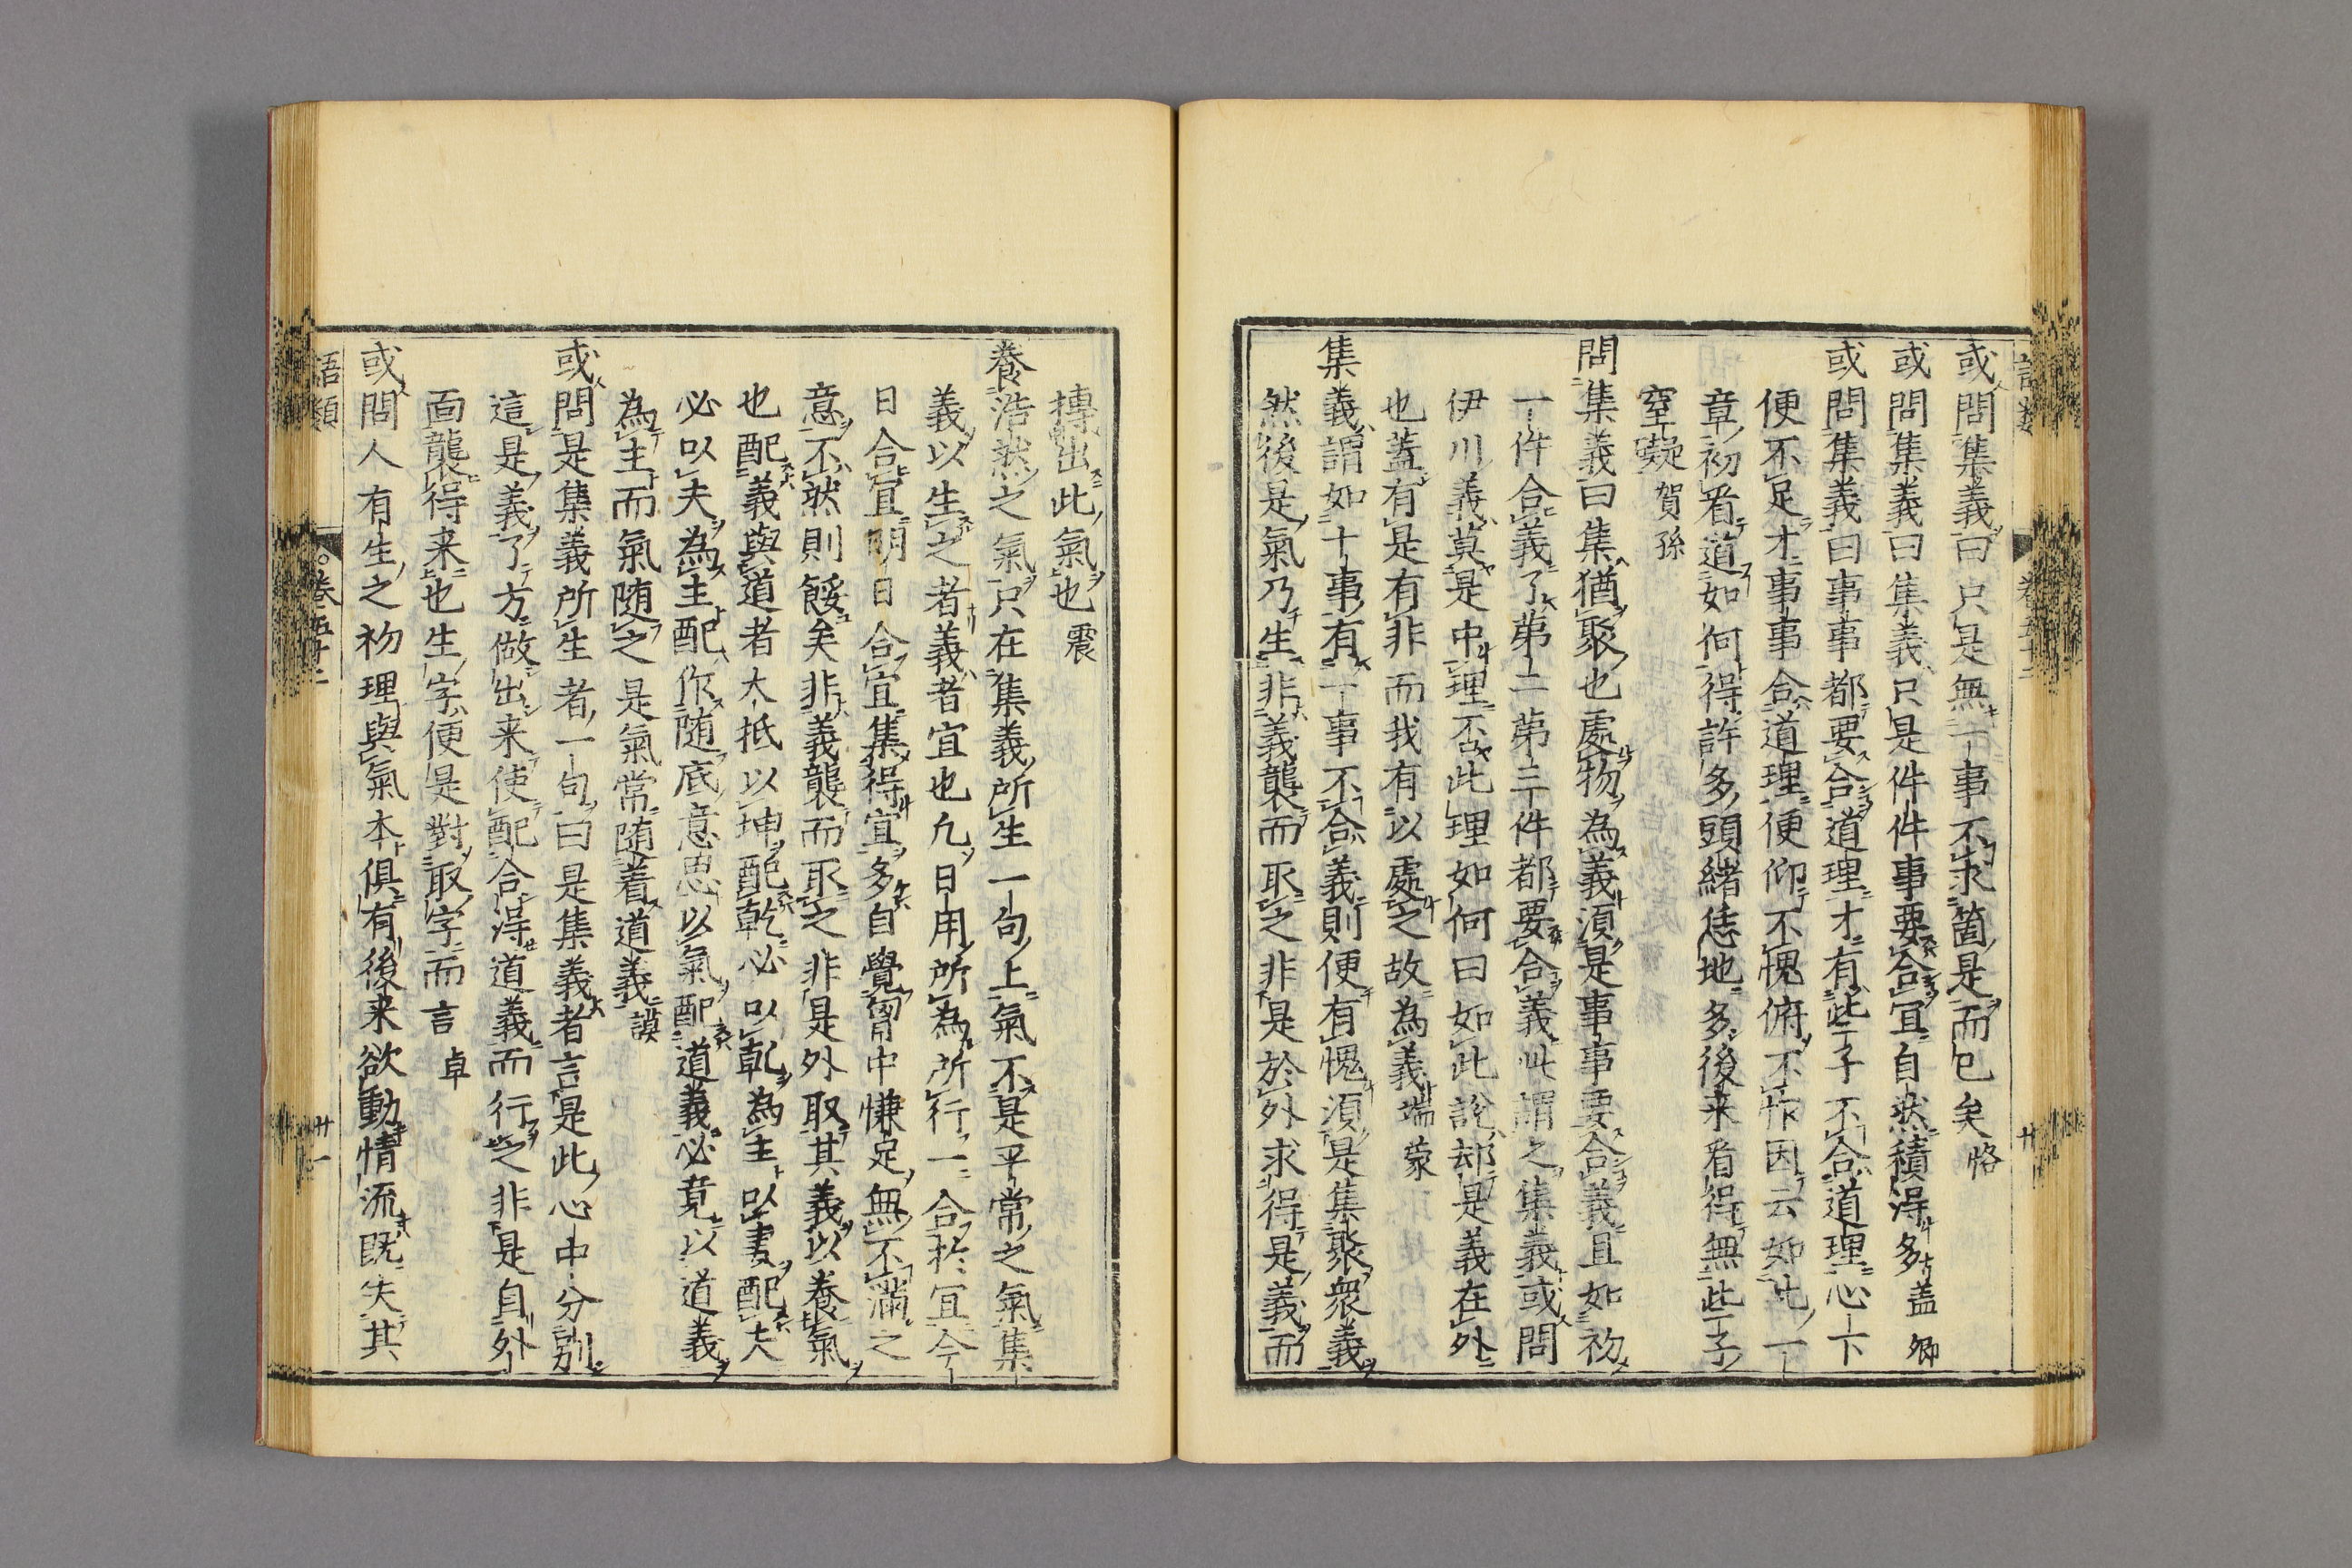 或問集義曰只是無一事不求箇是而已矣恪
或問集義曰集義只是件件事要合宜自然積得多蓋卿
或問集義曰事事都要合道理才有些子不合道理心下
便不足才事事合道理便仰不愧俯不怍因云如此一
章初看道如何得許多頭緒恁地多後來看得無些子
窒礙賀孫
問集義曰集猶聚也處物為義須是事事要合義且如初
一件合義了第二第三件都要合義此謂之集義或問
伊川義莫是中理否此理如何曰如此說却是義在外
也蓋有是有非而我有以處之故為義端蒙
集義謂如十事有一事不合義則便有愧須是集聚衆義
然後是氣乃生非義襲而取之非是於外求得是義而
語類 卷五十二 廿
摶出此氣也震
養浩然之氣只在集義所生一句上氣不是平常之氣集
義以生之者義者宜也凡日用所為所行一合於宜今
日合宜明日合宜集得宜多自覺胷中慊足無不滿之
意不然則餒矣非義襲而取之非是外取其義以養氣
也配義與道者大抵以坤配乾必以乾為主以妻配夫
必以夫為主配作随底意思以氣配道義必竟以道義
為主而氣随之是氣常随着道義謨
或問是集義所生者一句曰是集義者言是此心中分別
這是義了方做出来使配合得道義而行之非是自外
面襲得来也生字便是對取字而言卓
或問人有生之初理與氣本俱有後来欲動情流既失其
語類 卷五十二 廿一